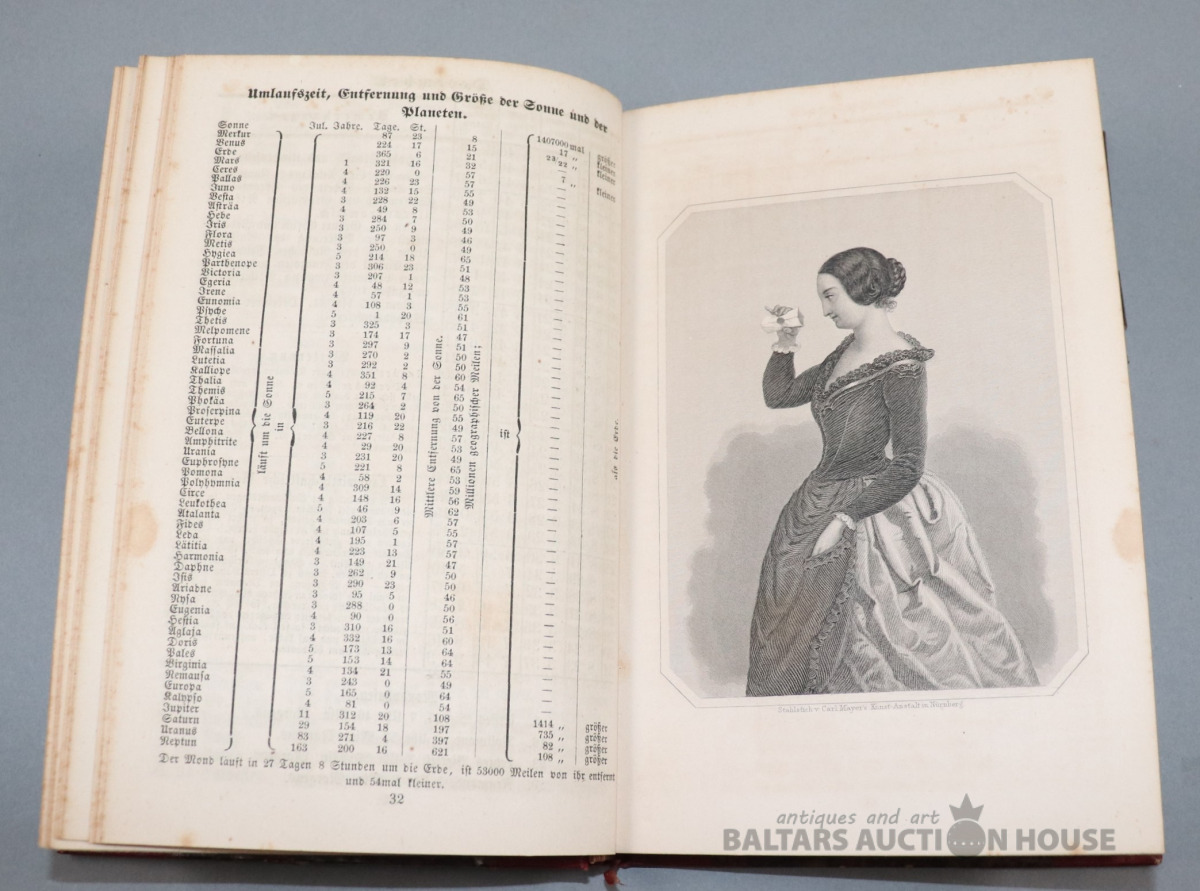 Umlaufszeit, Entfernung und Größe der Sonne und der
Planeten.
Jul. Jahre. Tage. St.
Sonne 1407000 mal größer
Merkur 87 23 8 17 „ kleiner
Venus 224 17 15 23/22 „ kleiner
Erde 365 6 21 —
Mars 1 321 16 32 7 „ kleiner
Ceres 4 220 0 57 —
Pallas 4 226 23 57 —
Juno 4 132 15 55 —
Vesta 3 228 22 49 —
Asträa 4 49 8 53 —
Hebe 3 284 7 50 —
Iris 3 250 9 49 —
Flora 3 97 3 46 —
Metis 3 250 0 49 —
Hygiea 5 214 18 65 —
Parthenope 3 306 23 51 —
Victoria 3 207 1 48 —
Egeria 4 48 12 53 —
Irene 4 57 1 53 —
Eunomia 4 108 3 55 —
Psyche 5 1 20 61 —
Thetis 3 325 3 51 —
Melpomene 3 174 17 47 —
Fortuna 3 297 9 51 —
Massalia 3 270 2 50 —
Lutetia 3 292 2 50 —
Kalliope 4 351 8 60 —
Thalia 4 92 4 54 —
Themis 5 215 7 65 —
Phokäa 3 264 2 50 —
Proserpina 4 119 20 55 —
Euterpe 3 216 22 49 —
Bellona 4 227 8 57 —
Amphitrite 4 29 20 53 —
Urania 3 231 20 49 —
Euphrosyne 5 221 8 65 —
Pomona 4 58 2 53 —
Polyhymnia 4 309 14 59 —
Circe 4 148 16 56 —
Leukothea 5 46 9 62 —
Atalanta 4 203 6 57 —
Fides 4 107 5 55 —
Leda 4 195 1 57 —
Lätitia 4 223 13 57 —
Harmonia 3 149 21 47 —
Daphne 3 262 9 50 —
Isis 3 290 23 50 —
Ariadne 3 95 5 46 —
Nysa 3 288 0 50 —
Eugenia 4 90 0 56 —
Hestia 3 310 16 51 —
Aglaja 4 332 16 60 —
Doris 5 173 13 64 —
Pales 5 153 14 64 —
Virginia 4 134 21 55 —
Nemausa 3 243 0 49 —
Europa 5 165 0 64 —
Kalypso 4 81 0 54 —
Jupiter 11 312 20 108 1414 „ größer
Saturn 29 154 18 197 735 „ größer
Uranus 83 271 4 397 82 „ größer
Neptun 163 200 16 621 108 „ größer
läuft um die Sonne
in
Mittlere Entfernung von der Sonne.
Millionen geographischer Meilen;
ist
als die Erde.
Der Mond läuft in 27 Tagen 8 Stunden um die Erde, ist 53000 Meilen von ihr entfernt
und 54mal kleiner.
32
Stahlstich v. Carl Mayer's Kunst-Anstalt in Nürnberg.
antiques and art
BALTARS AUCTION HOUSE